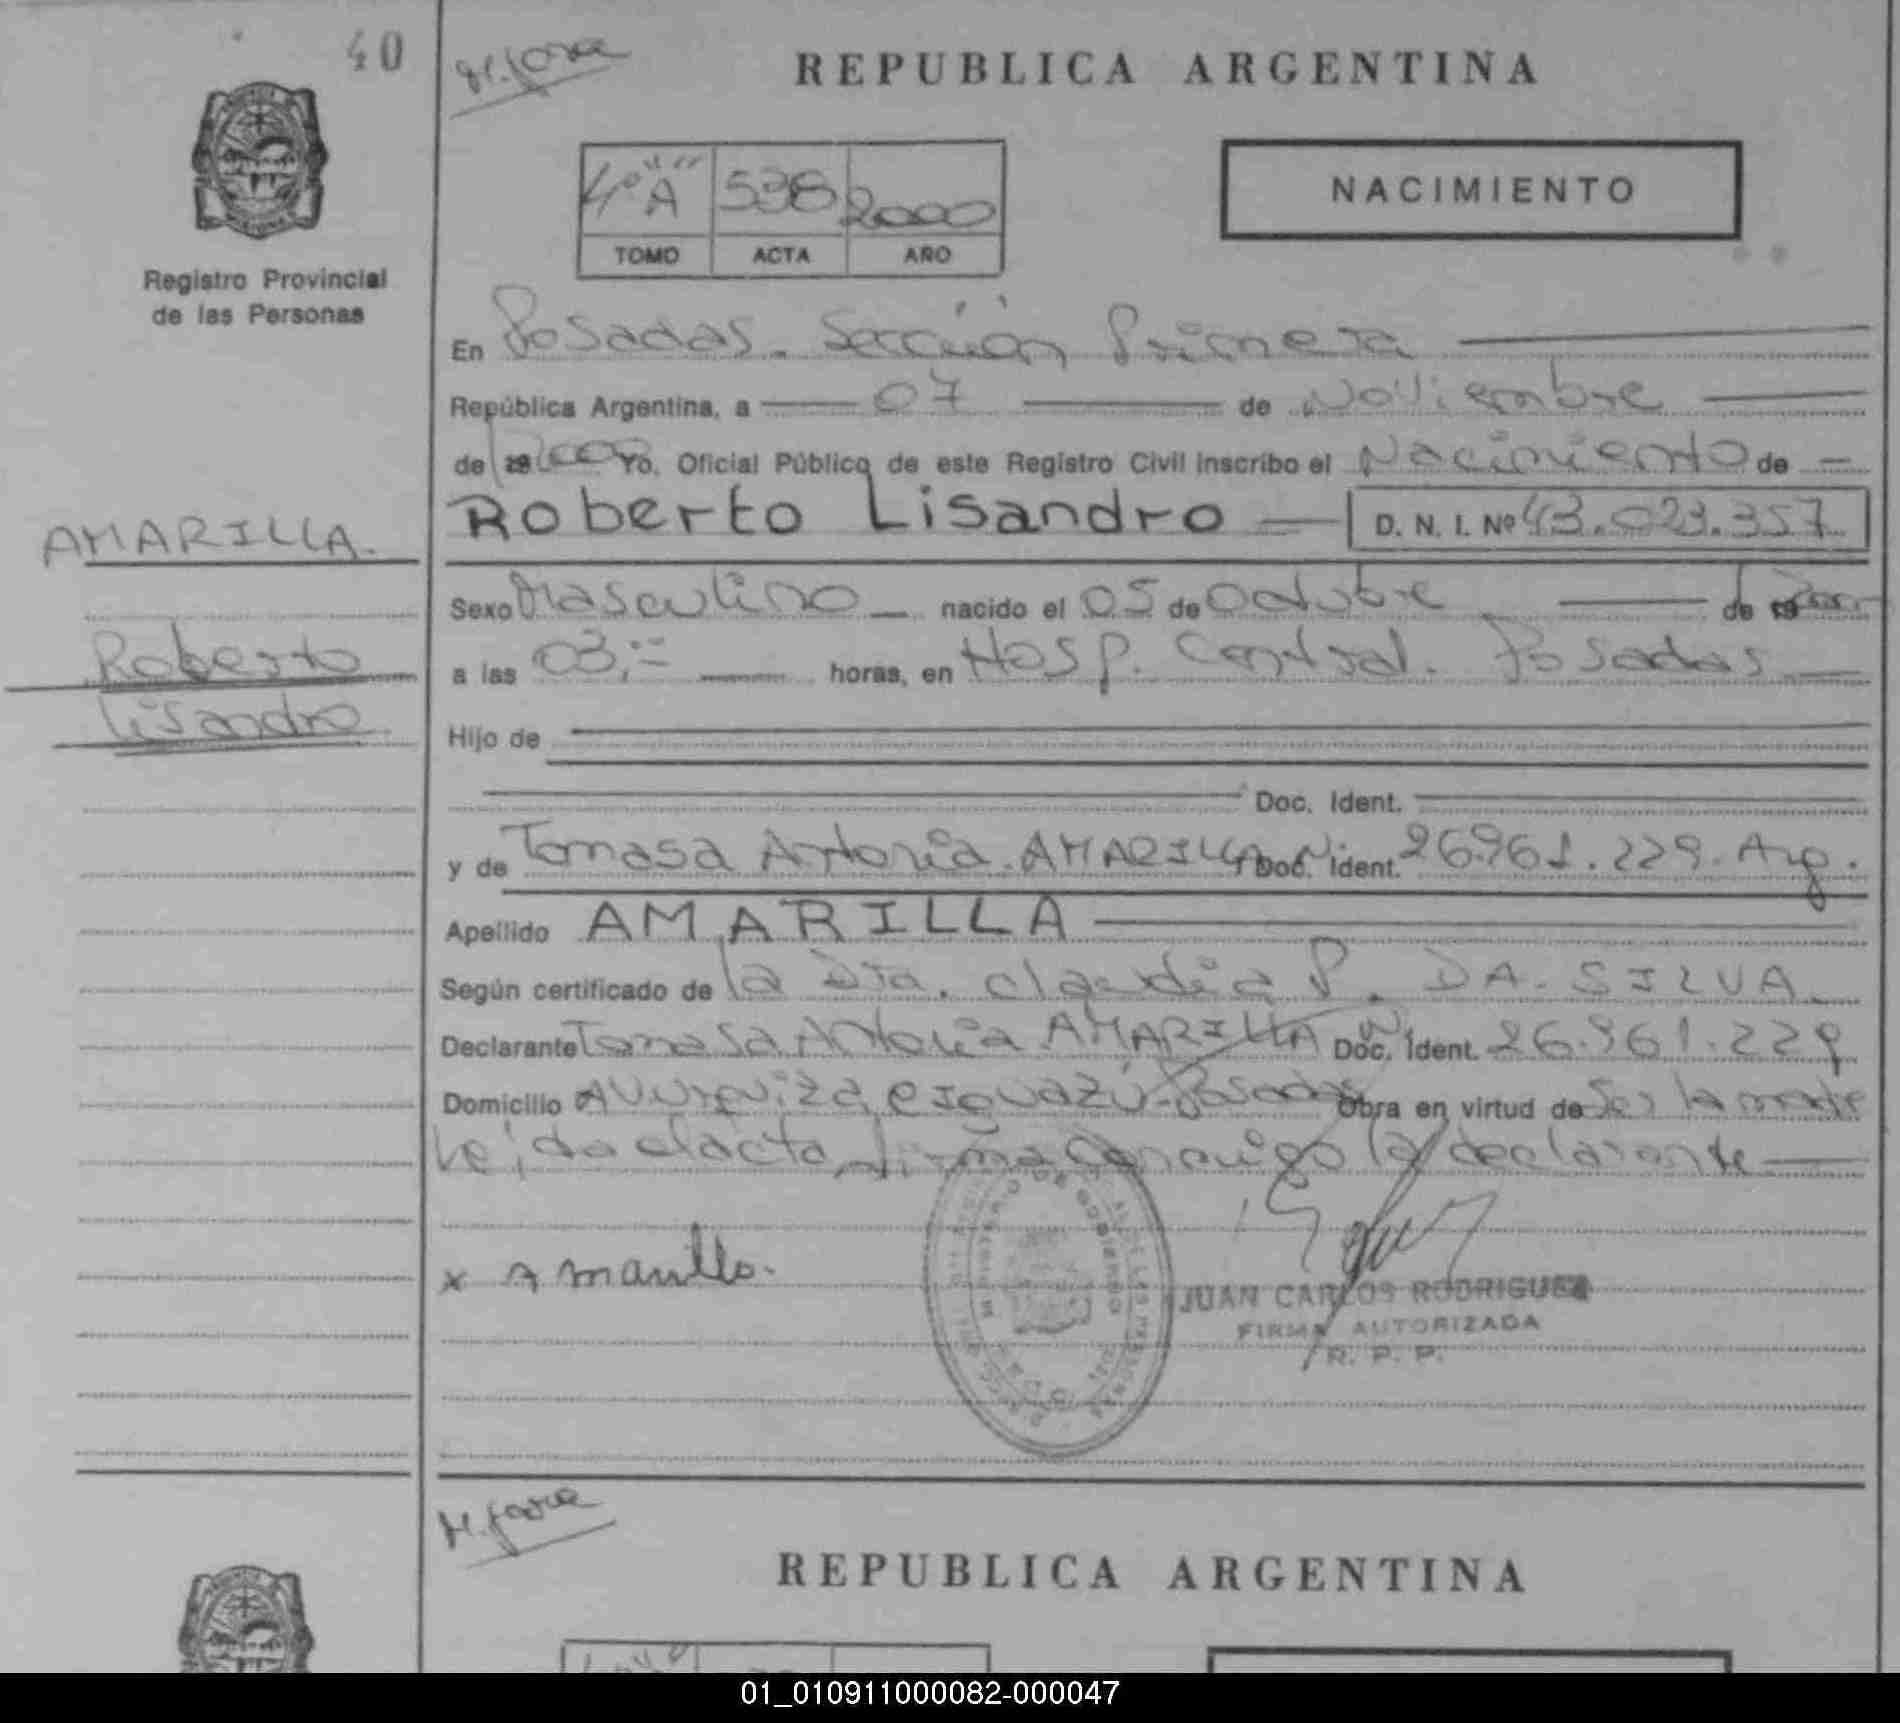 40
REPUBLICA ARGENTINA
4º "A" 538 2000
TOMO ACTA AÑO
NACIMIENTO
Registro Provincial
de las Personas
En Posadas. Sección Primera
República Argentina, a 07 de Noviembre
de 19 2000 Yo, Oficial Público de este Registro Civil inscribo el Nacimiento de
Roberto Lisandro D. N. I. Nº 43.023.357
AMARILLA.
Roberto
Lisandro
Sexo Masculino nacido el 05 de Octubre de 19 2000
a las 03,= horas, en Hosp. Central. Posadas
Hijo de
Doc. Ident.
y de Tomasa Antonia AMARILLA Doc. Ident. 26.961.229. Arg.
Apellido AMARILLA
Según certificado de la Dra. Claudia P. DA SILVA.
Declarante Tomasa Antonia AMARILLA Doc. Ident. 26.961.229
Domicilio Av Urquiza e Iguazú-Posadas Obra en virtud de Ser la madre
Leída el acta, firma conmigo la declarante
x Amarilla.
JUAN CARLOS RODRIGUEZ
FIRMA AUTORIZADA
R. P. P.
REPUBLICA ARGENTINA
01_010911000082-000047